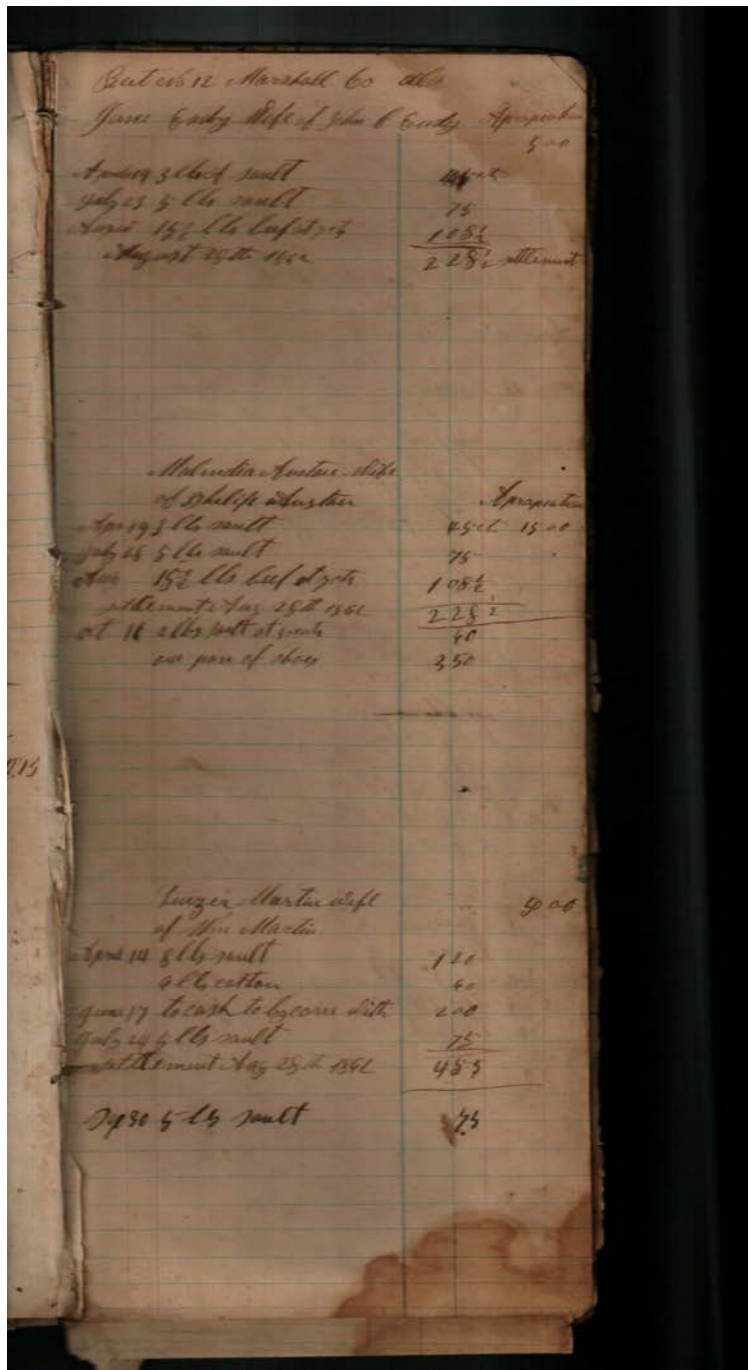 Beat No 12 Marshall Co Ala
Jane Eady Wife of John C Eady Apropiation
5 00
April 19 3 lbs of sault 45 cts
July 23 5 lbs sault 75
August 15½ lbs beef at 7 cts 1 08½
August 28th 1862 2 28½ settlement
Malindia Austen Wife
of Philip Austen Apropiation
Apr 19 3 lbs sault 45 ct 15 00
July 25 5 lbs sault 75
Aug 15½ lbs beef at 7 cts 1 08½
settlement Aug 28th 1862 2 28½
oct 11 2 lbs salt at cents 60
one pare of shoes 3 50
7,15
Luizer Martin Wife 5 00
of Wm Martin
April 14 8 lbs sault 1 20
lbs cotton 60
June 17 to cash to by corn with 2 00
July 24 5 lbs sault 75
settlement Aug 28th 1862 4 55
Sep 30 5 lbs sault 75